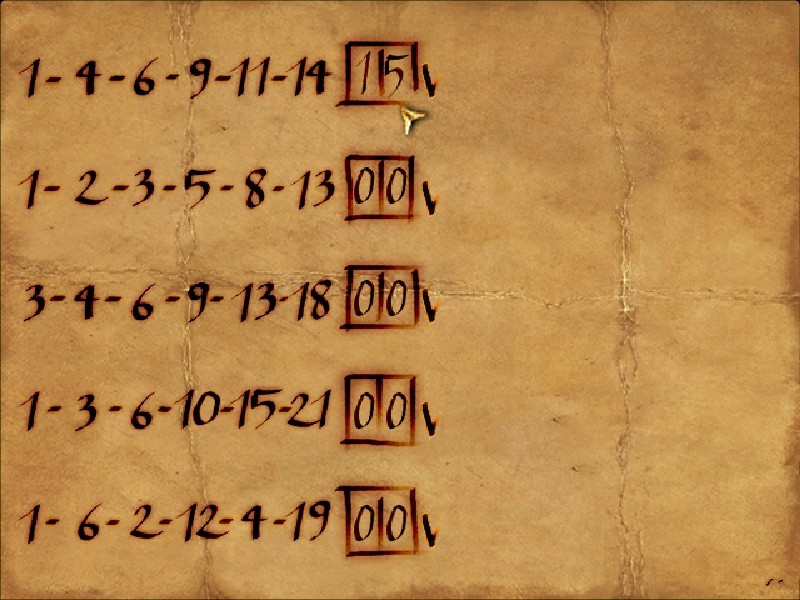 1-4-6-9-11-14 15
1-2-3-5-8-13 00
3-4-6-9-13-18 00
1-3-6-10-15-21 00
1-6-2-12-4-19 00